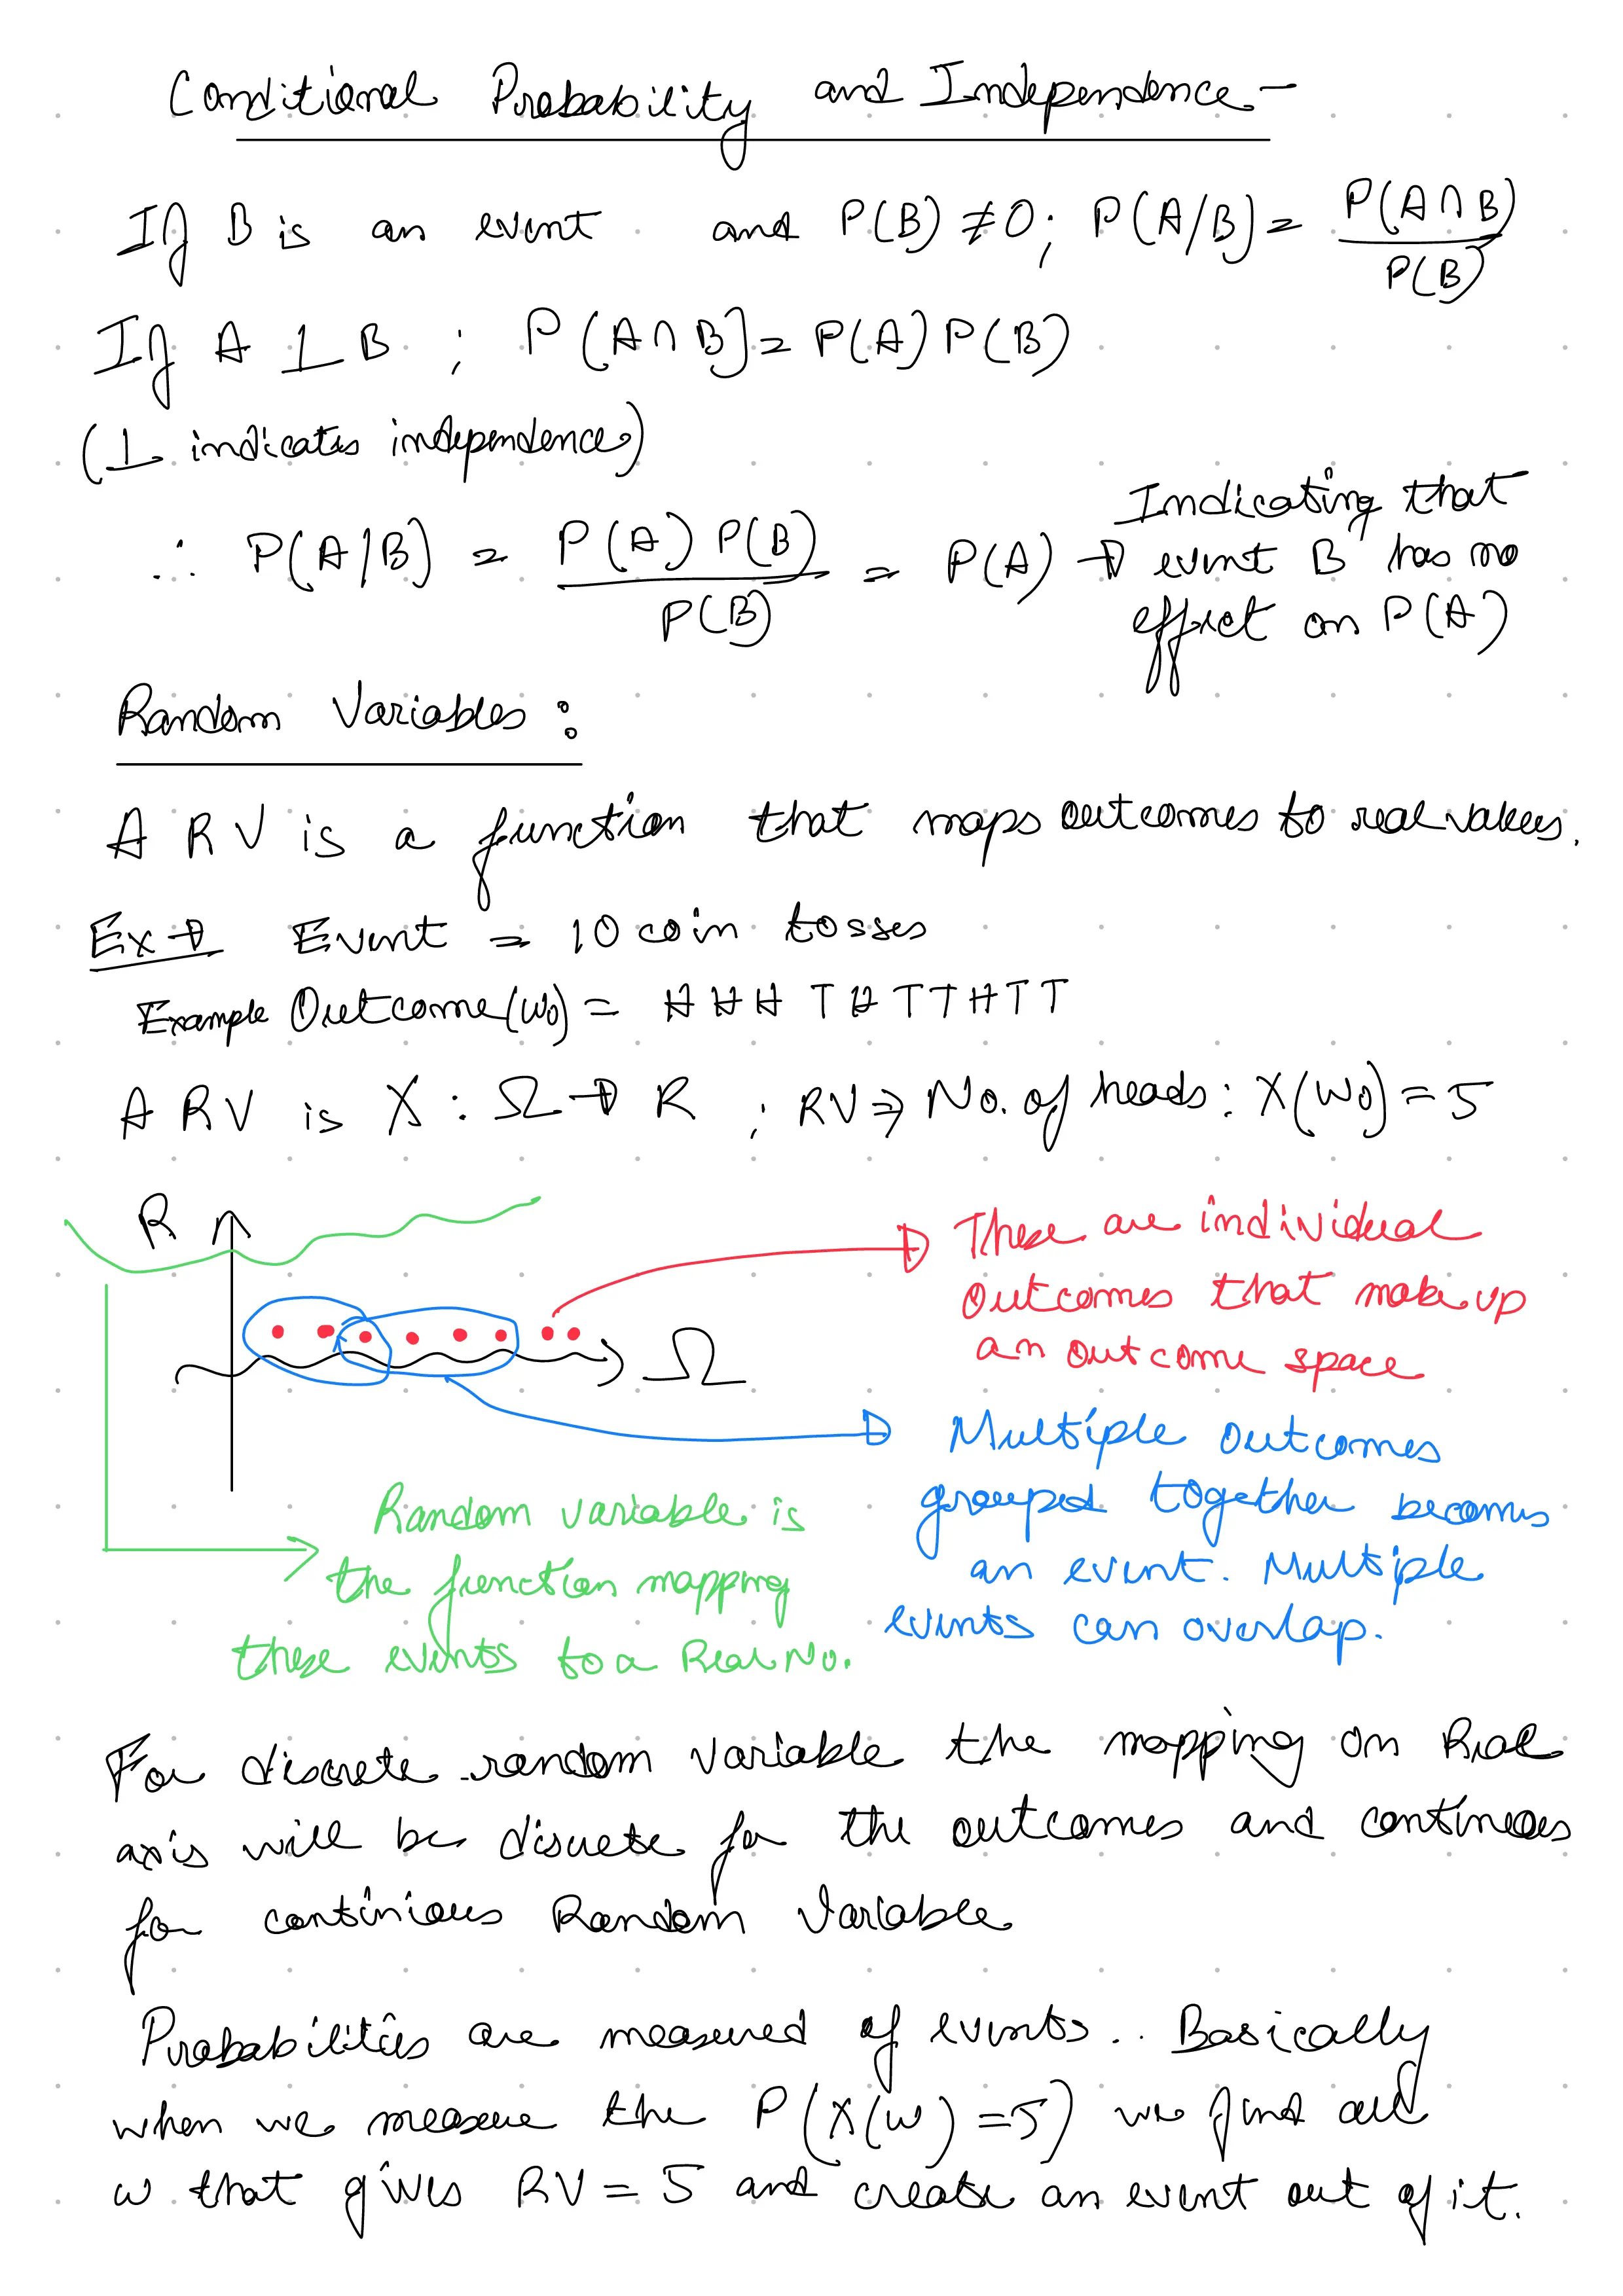 Conditional Probability and Independence -
If B is an event and P(B) ≠ 0; P(A/B) = P(A∩B) / P(B)
If A ⊥ B ; P(A∩B) = P(A) P(B)
(⊥ indicates independence)
∴ P(A/B) = P(A) P(B) / P(B) = P(A) → Indicating that
event B has no
effect on P(A)
Random Variables :
A RV is a function that maps outcomes to real values.
Ex → Event = 10 coin tosses
Example Outcome (w₀) = H H H T H T T H T T
A RV is X : Ω → R ; RV ⇒ No. of heads : X(w₀) = 5
R
Ω
These are individual
outcomes that make up
an outcome space
Multiple outcomes
grouped together becomes
an event. Multiple
events can overlap.
Random variable is
the function mapping
these events to a Real No.
For discrete random variable the mapping on Real
axis will be discrete for the outcomes and continuous
for continious Random Variable
Probabilities are measured of events.. Basically
when we measure the P(X(w) = 5) we find all
w that gives RV = 5 and create an event out of it.